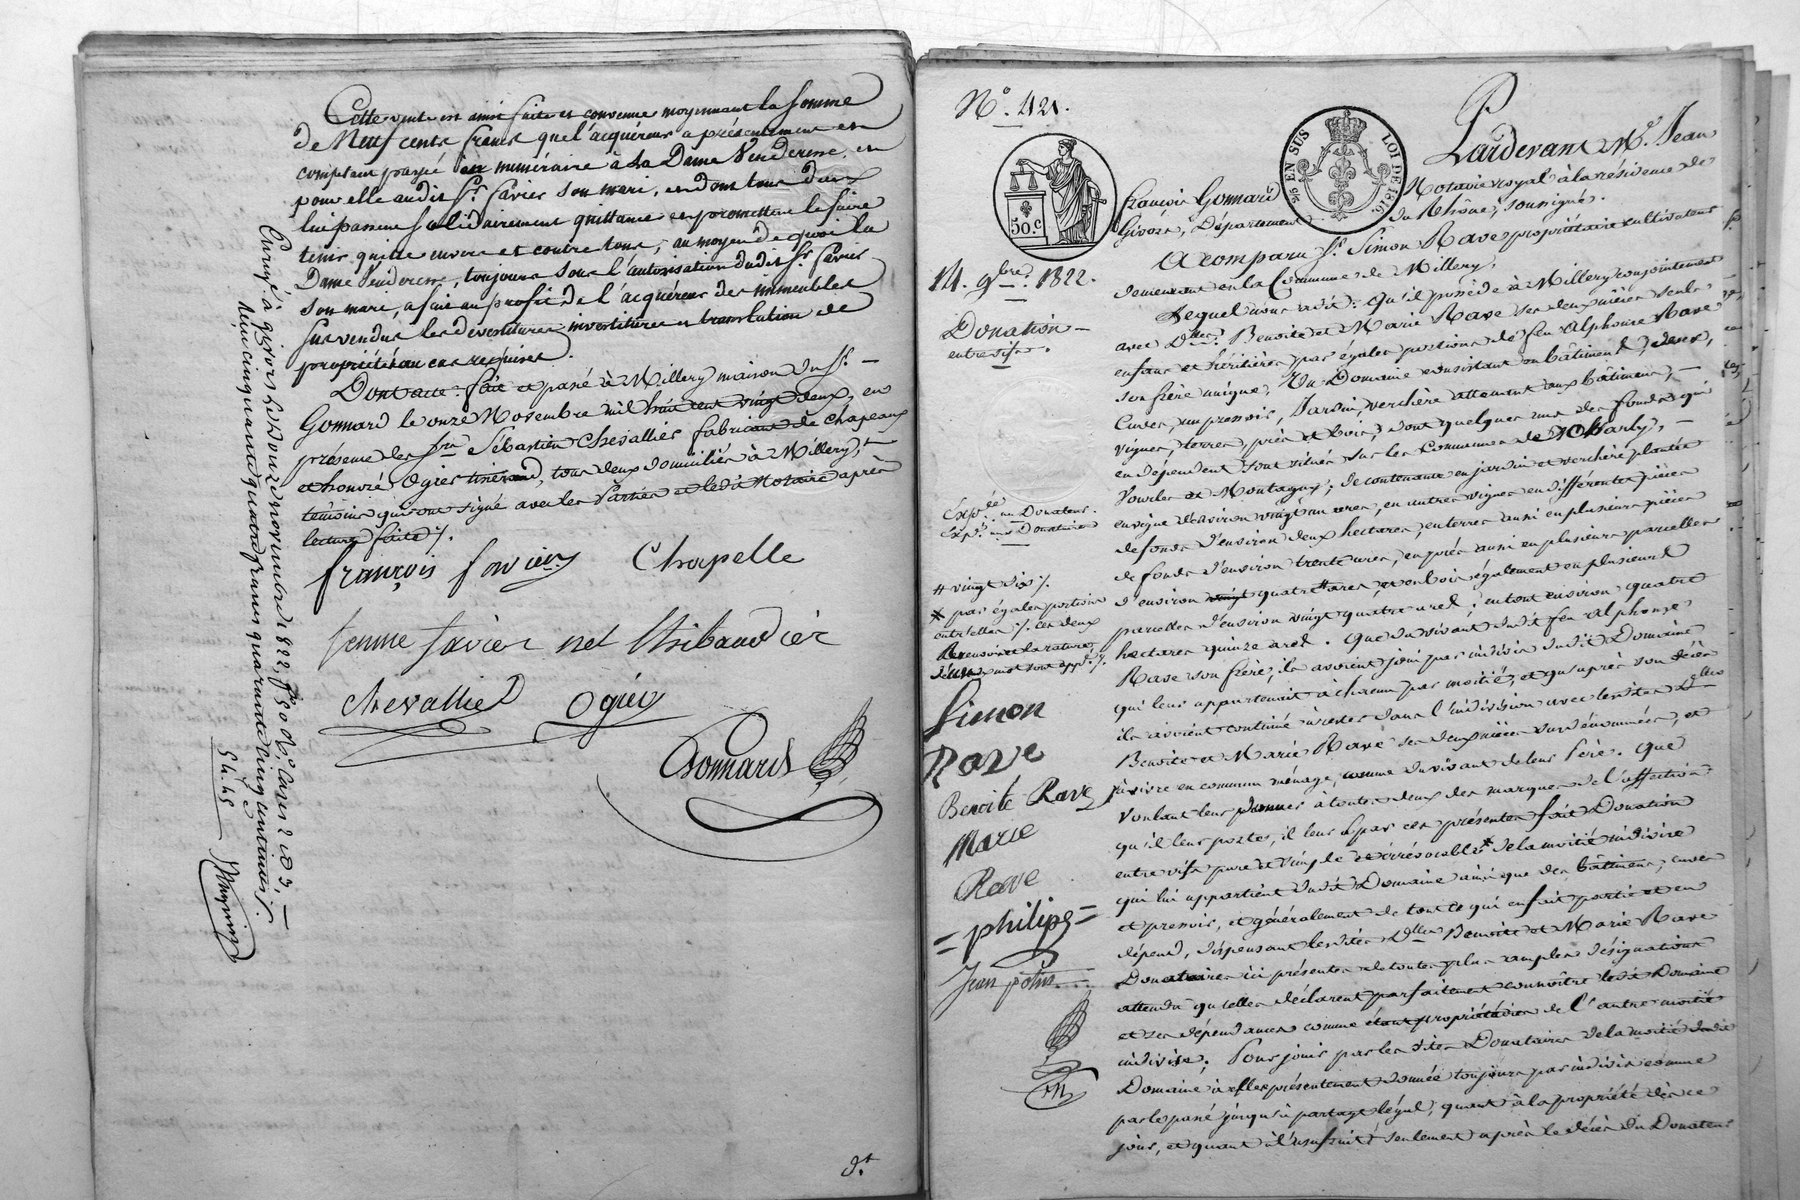 Cette vente est ainsi faite et convenue moyennant la somme
de Neuf cents francs que l'acquéreur a présentement et
comptant payé en numéraire à la Dame Venderesse, et
pour elle audit Sr. favier son mari, et dont tous deux
lui passent solidairement quittance et promettent le faire
tenir quitte envers et contre tous; au moyen de quoi la
Dame Venderesse, toujours sous l'autorisation dudit Sr. favier
son mari, a fait au profit de l'acquéreur des immeubles
sus vendus les devestitures investitures et translation de
propriété au cas requises.
Dont acte: fait et passé à Millery maison du Sr.
Gonnard le onze Novembre mil huit cent vingt deux, en
présence des Srs. Sébastien Chevallier fabricant de chapeaux
et honoré Ogier, tous deux domiciliés à Millery,
témoins qui ont signé avec les Parties et ledit Notaire après
lecture faite ./.
françois favier Chapelle
femme favier net thibaudier
chevallier Ogier
Gonnard
Enregé. à givors le douze novembre 1822. fo. 50 Vo. Cases 2 et 3,
reçu cinquante quatre francs quarante cinq centimes ./.
54.45
No. 421.
50 C
95 EN SUS LOI DE 1816
14. 9bre. 1822.
Donation
entrevifs.
Expé. au Donateur.
# vingt six ./.
* par égales portions
entr'elles ./. ces deux
Simon
Rave
Benoite Rave
Marie
Rave
= philipe =
Jean
Pardevant Me. Jean
françois Gonnard Notaire royal à la résidence de
Givors, Département du Rhône, soussigné.
A comparu Sr. Simon Rave propriétaire cultivateur
demeurant en la Commune de Millery.
Lequel nous a dit: Qu'il possède à Millery conjointement
avec Dlles. Benoite et Marie Rave ses deux nièces seuls
enfans et héritières par égales portions de feu alphonse Rave
son frère unique, Un Domaine consistant en bâtiment, cuves,
Cuvier, un pressoir, Jardin, verchère attenant aux bâtimens,
vignes, terres, prés et bois, dont quelques uns des fonds qui
en dépendent sont situés sur les Communes de Charly,
Vourles et Montagny; de contenante en jardin et verchère plantée
en vigne d'environ vingt un ares, en autres vignes en différentes pièces
de fonds d'environ deux hectares, en terres aussi en plusieurs pièces
de fonds d'environ trente ares, en prés aussi en plusieurs parcelles
d'environ vingt quatre # ares, et en bois également en plusieurs
parcelles d'environ vingt quatre ares; en tout environ quatre
hectares quinze ares. Que du vivant dudit feu alphonse
Rave son frère, ils avoient joui par indivis dudit Domaine
qui leur appartenoit à chacun par moitié, et qu'après son décès
ils avoient continué à rester dans l'indivision avec lesdites Dlles
Benoite et Marie Rave ses deux nièces susdénommées, et
à vivre en commun ménage, comme du vivant de leur Père. Que
voulant leur donner à toutes deux des marques de l'affection
qu'il leur porte, il leur a par ces présentes fait Donation
entrevifs pure et simple et irrévocable * de la moitié indivise
qui lui appartient dudit Domaine ainsi que des bâtimens, cuves
et pressoir, et généralement de tout ce qui en fait partie et en
dépend, dispensant lesdites Dlles Benoite et Marie Rave
Donataires ici présentes de toute plus ample désignation
attendu qu'elles déclarent parfaitement connoître ledit Domaine
et ses dépendances comme étant propriétaires de l'autre moitié
indivise; Pour jouir par lesdites Donataires de la moitié dudit
Domaine à elles présentement donnée toujours par indivis comme
par le passé jusqu'à partage légal, quant à la propriété dès ce
jour, et quant à l'usufruit seulement après le décès du Donateur